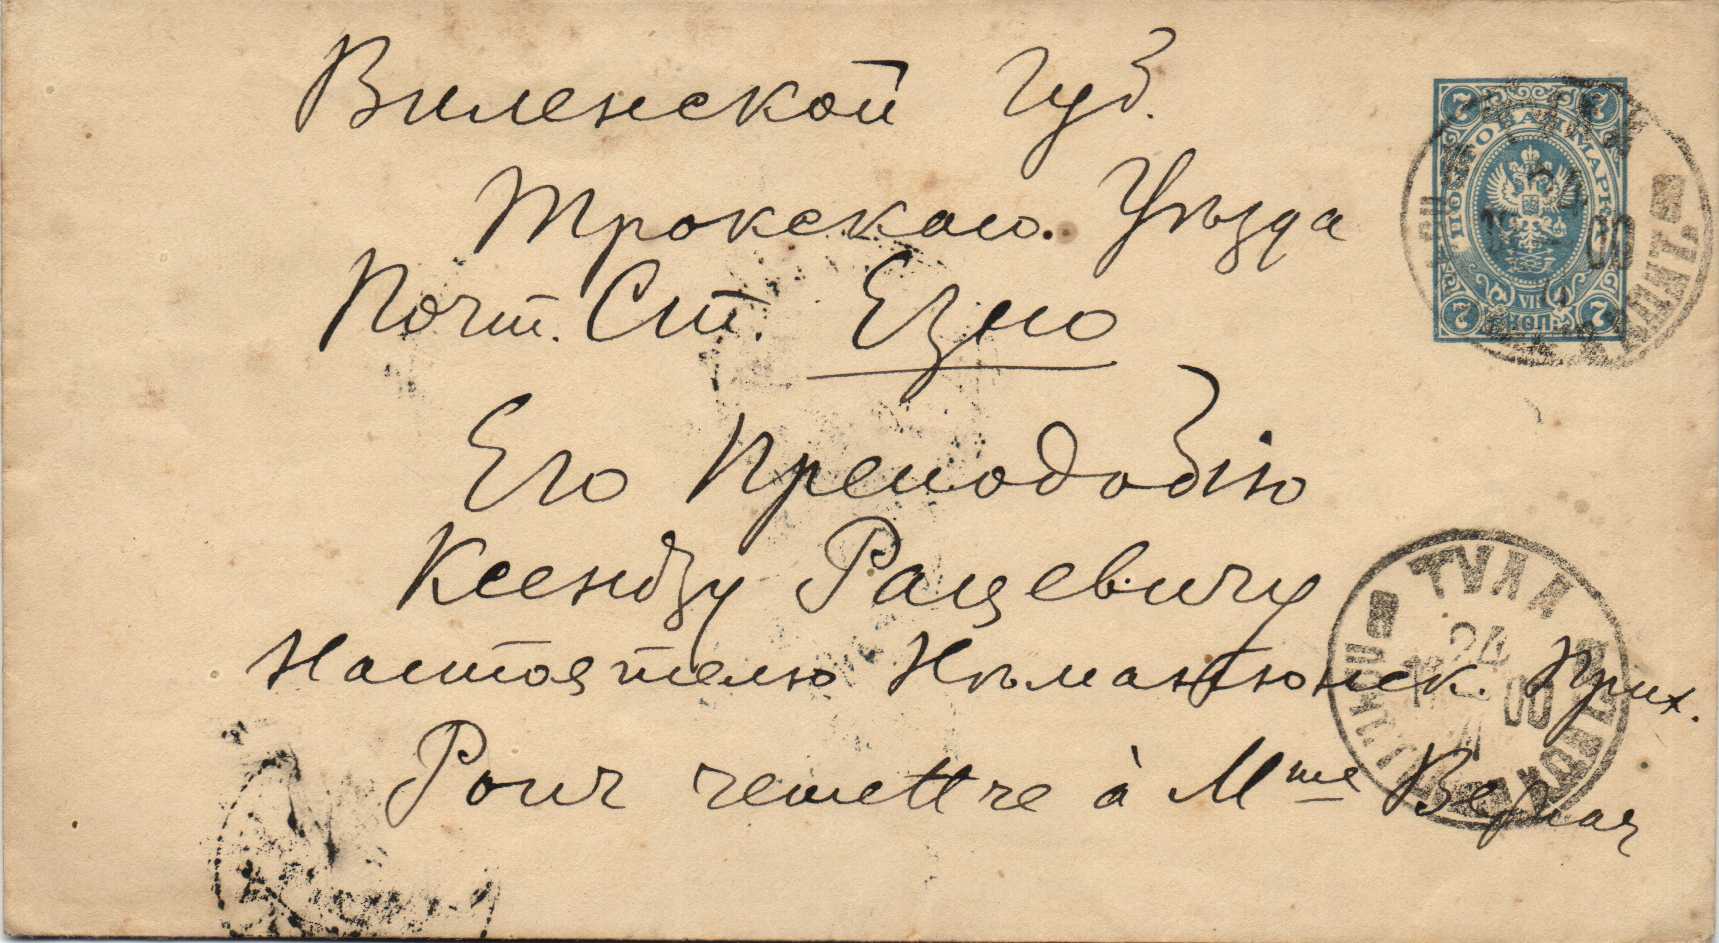 Виленской Губ.
Трокскаго. Уѣзда
Почт. Ст. Езно
Его Преподобію
Ксендзу Рацевичу
Настоятелю Нѣманюнск. Прих.
Pour remettre à Mme
ПОЧТОВАЯ МАРКА
7 7
7 7
VII
КОП.
00
ТУЛИ
24
00